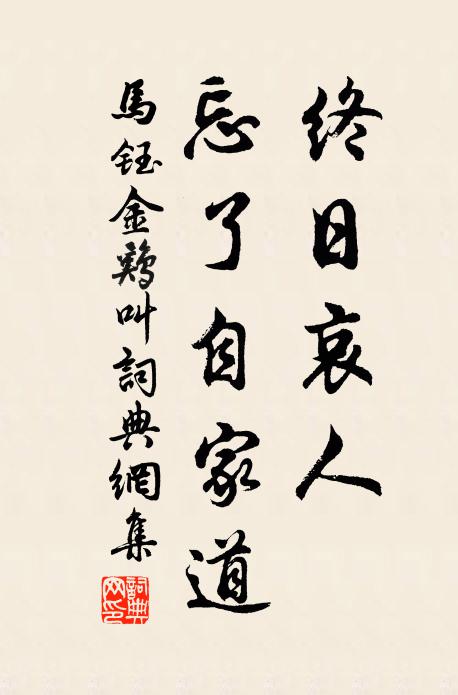 終日哀人
忘了自家道
馬鈺金鷄叫詞典網集
詞典
网印